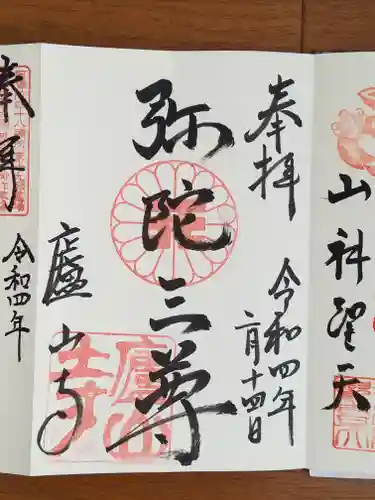 山科聖天
奉拝
令和四年
二月十四日
弥陀三尊
廬山寺
廬山寺
奉拝
令和四年